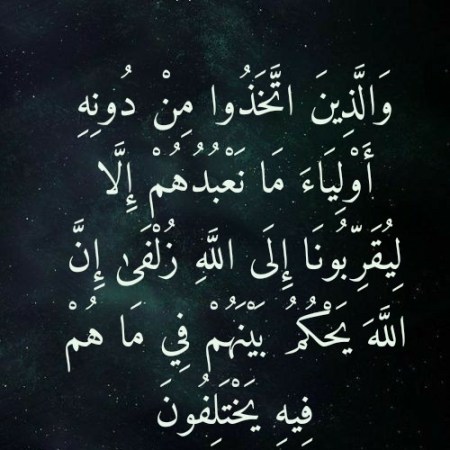 وَالَّذِينَ اتَّخَذُوا مِنْ دُونِهِ
أَوْلِيَاءَ مَا نَعْبُدُهُمْ إِلَّا
لِيُقَرِّبُونَا إِلَى اللَّهِ زُلْفَىٰ إِنَّ
اللَّهَ يَحْكُمُ بَيْنَهُمْ فِي مَا هُمْ
فِيهِ يَخْتَلِفُونَ